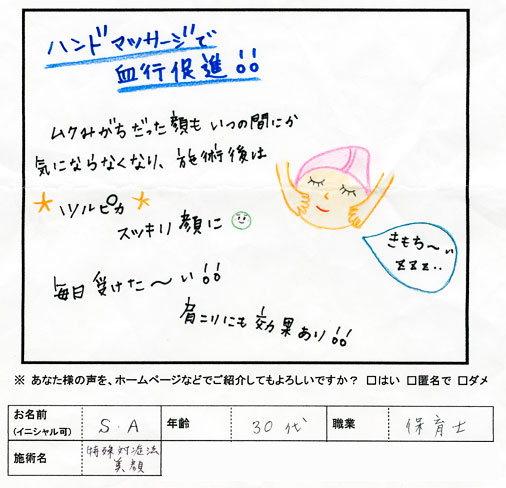 ハンドマッサージで
血行促進!!
ムクみがちだった顔も いつの間にか
気にならなくなり、施術後は
ツルピカ
スッキリ顔に
きもち〜い
zzz..
毎日受けた〜い!!
肩こりにも効果あり!!
※ あなた様の声を、ホームページなどでご紹介してもよろしいですか? □はい □匿名で □ダメ
お名前 (イニシャル可) S.A 年齢 30代 職業 保育士
施術名 特殊対流法 美顔